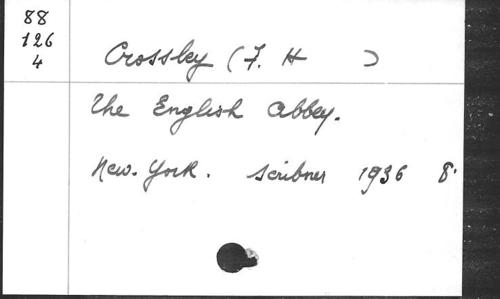 88
126
4
Crossley (F. H )
The English abbey.
New-York. Scribner 1936 8°